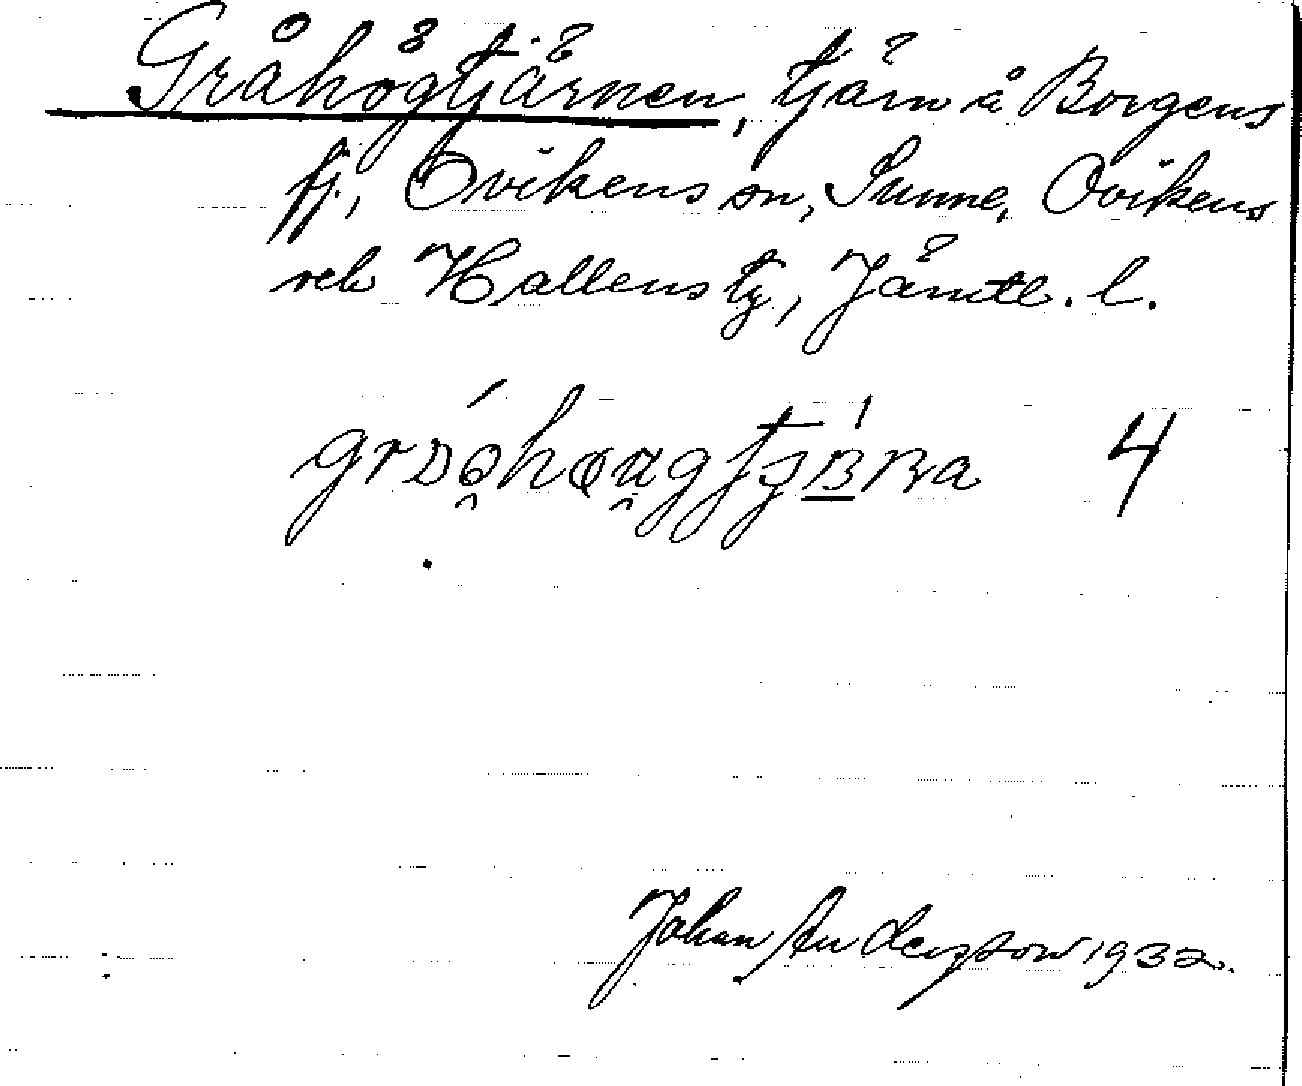 Gråhögtjärnen, tjärn å Borgens
fj., Ovikens sn, Sunne, Ovikens
och Hallens tg, Jämtl. l.
4
Johan Andersson 1932.